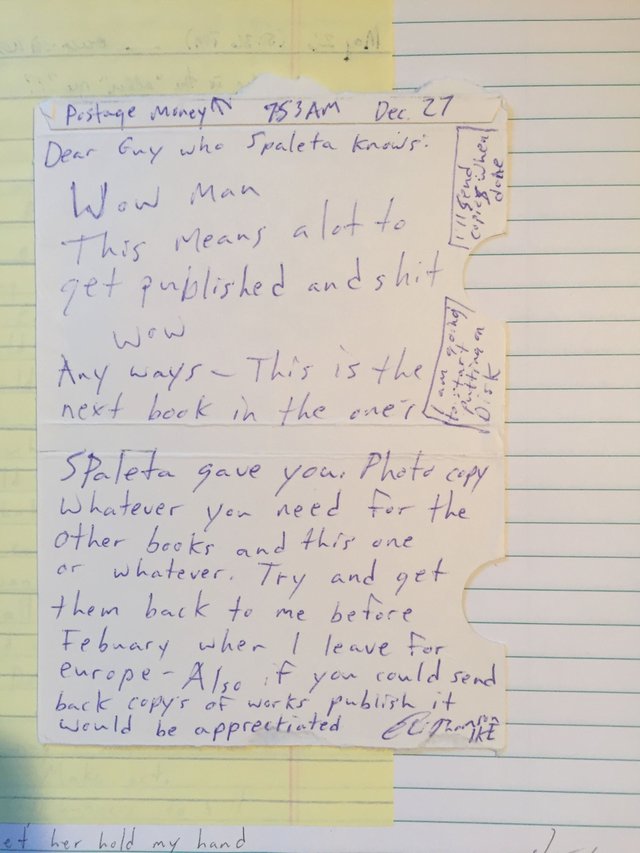 Postage Money 753AM Dec. 27
Dear Guy who Spaleta knows:
Wow Man
This Means alot to
get published and shit
wow
Any ways - This is the
next book in the one's
I'll send
copies when
done
I am going
to start
putting on
Disk
Spaleta gave you. Photo copy
whatever you need for the
other books and this one
or whatever. Try and get
them back to me before
Febuary when I leave for
europe - Also if you could send
back copy's of works publish it
would be apprectiated
et her hold my hand